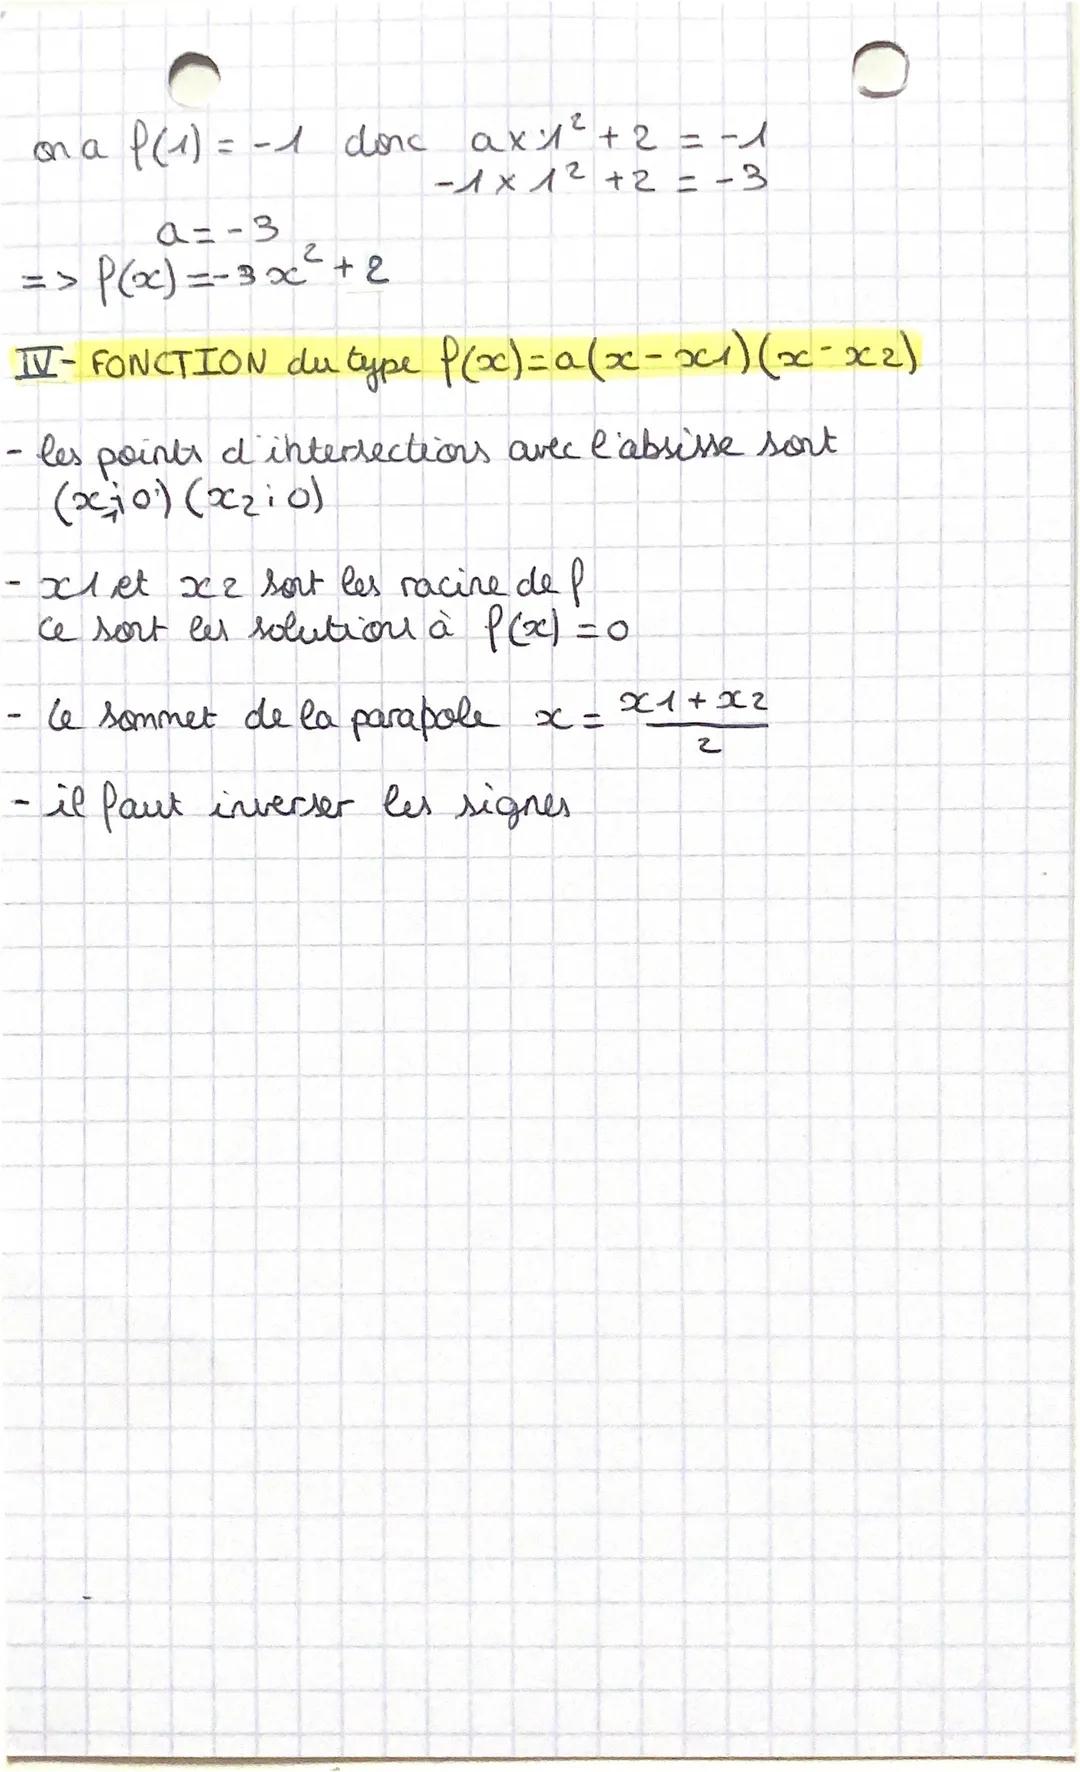 on a f(1) = -1 donc a x 1² + 2 = -1
-1 x 1² + 2 = -3
a = -3
=> f(x) = -3x² + 2
IV- FONCTION du type f(x) = a(x - x1)(x - x2)
- les points d'intersections avec l'absisse sont
(x1;0) (x2;0)
- x1 et x2 sont les racine de f
ce sont les solutions à f(x) = 0
- le sommet de la parabole x = x1 + x2 / 2
- il faut inverser les signes